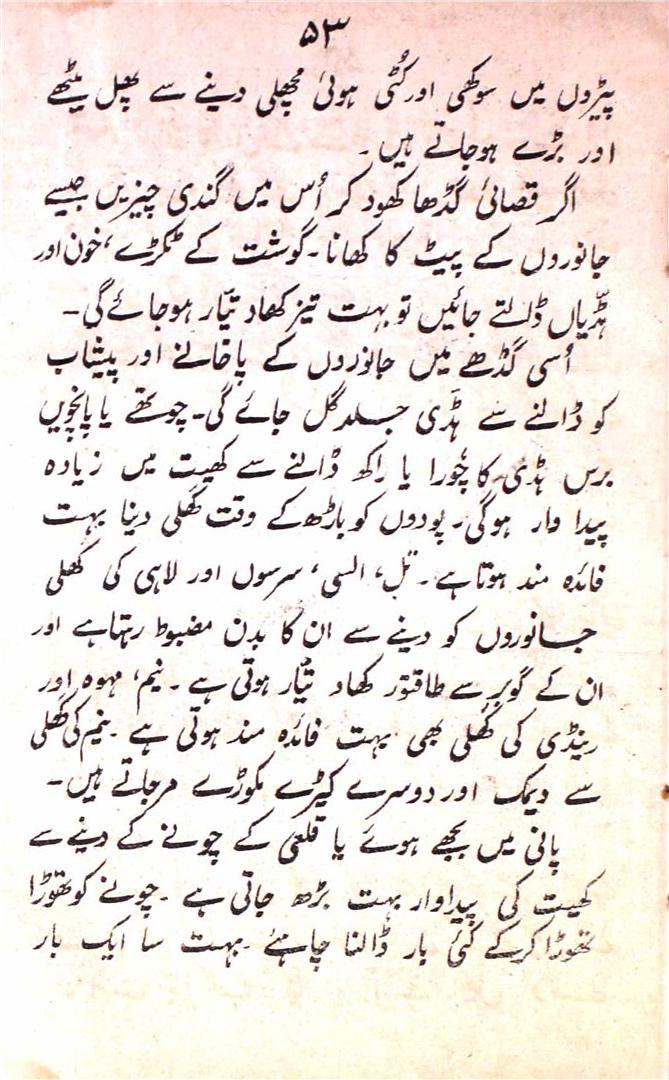 ۵۳
پیڑوں میں سوکھی اور کُٹی ہوئی مچھلی دینے سے پھل میٹھے
اور بڑے ہوجاتے ہیں۔
اگر قصائی گڈھا کھود کر اُس میں گندی چیزیں جیسے
جانوروں کے پیٹ کا کھانا۔ گوشت کے ٹکڑے، خون اور
ہڈّیاں ڈالتے جائیں تو بہت تیز کھاد تیّار ہوجائے گی۔
اُسی گڈھے میں جانوروں کے پاخانے اور پیشاب
کو ڈالنے سے ہڈّی جلد گل جائے گی۔ چوتھے یا پانچویں
برس ہڈی کا چُورا یا راکھ ڈالنے سے کھیت میں زیادہ
پیدا وار ہوگی۔ پودوں کو باڑھ کے وقت کھلی دینا بہت
فائدہ مند ہوتا ہے۔ تِل، السی، سرسوں اور لاہی کی کھلی
جانوروں کو دینے سے ان کا بدن مضبوط رہتا ہے اور
ان کے گوبر سے طاقتور کھاد تیّار ہوتی ہے۔ نیم، مہوہ اور
رینڈی کی کھلی بھی بہت فائدہ مند ہوتی ہے۔ نیم کی کھلی
سے دیمک اور دوسرے کیڑے مکوڑے مرجاتے ہیں۔
پانی میں بجھے ہوئے یا قلعی کے چونے کے دینے سے
کھیت کی پیداوار بہت بڑھ جاتی ہے۔ چونے کو تھوڑا
تھوڑا کرکے کئی بار ڈالنا چاہئے۔ بہت سا ایک بار